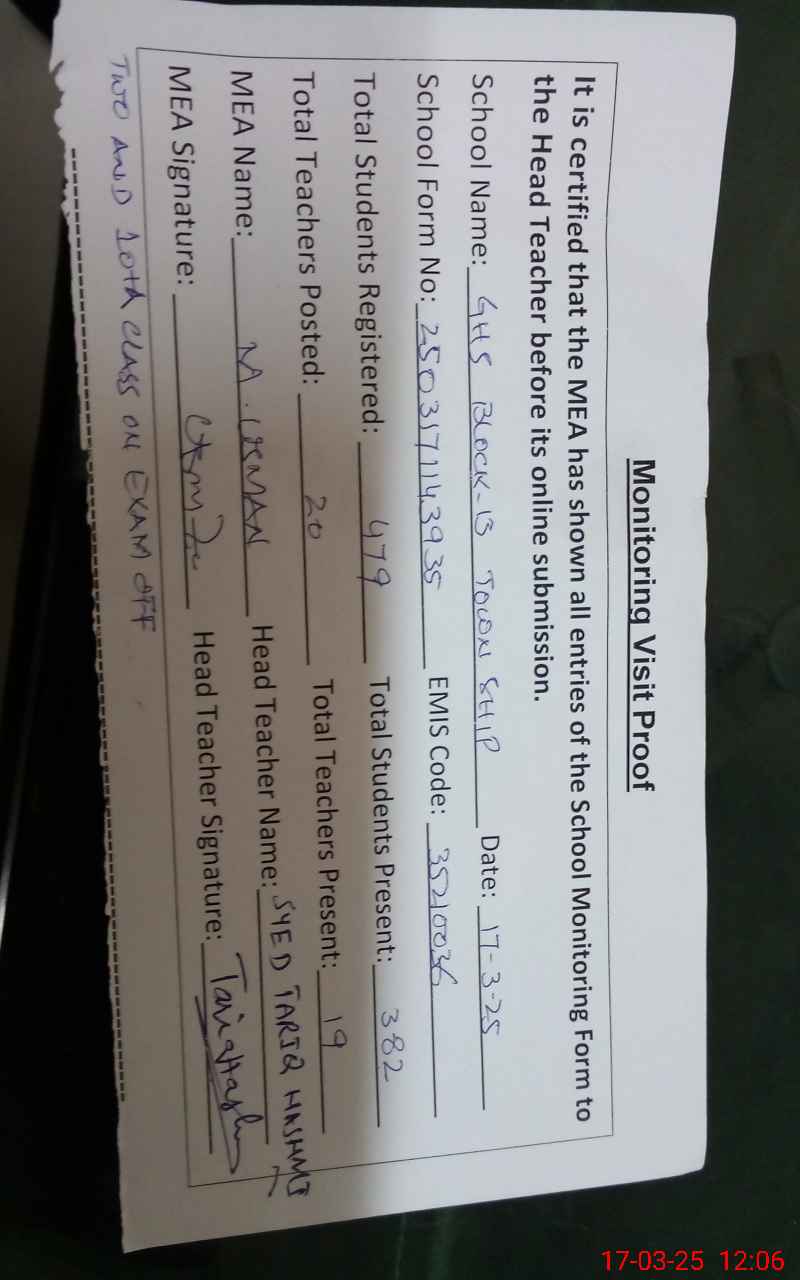 Monitoring Visit Proof
It is certified that the MEA has shown all entries of the School Monitoring Form to
the Head Teacher before its online submission.
School Name: GHS BLOCK-13 TOWN SHIP Date: 17-3-25
School Form No: 2503171143935 EMIS Code: 35210036
Total Students Registered: 479 Total Students Present: 382
Total Teachers Posted: 20 Total Teachers Present: 19
MEA Name: M. USMAN Head Teacher Name: SYED TARIQ HASHMI
MEA Signature: Head Teacher Signature: Tariq Hashmi
TWO AND 10th CLASS ON EXAM OFF
17-03-25 12:06